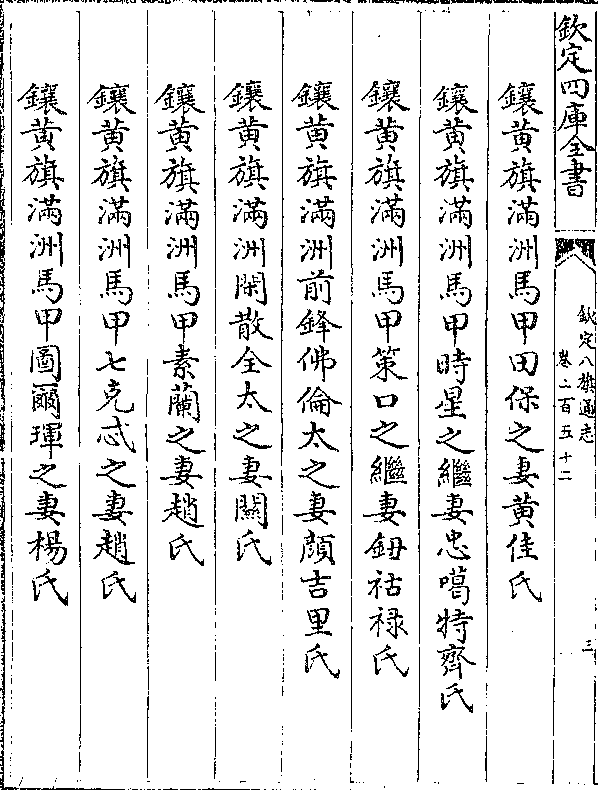 欽定四庫全書
欽定八旗通志
卷二百五十二
三
鑲黄旗滿洲馬甲田保之妻黄佳氏
鑲黄旗滿洲馬甲時星之繼妻忠噶特齊氏
鑲黄旗滿洲馬甲策口之繼妻鈕祜禄氏
鑲黄旗滿洲前鋒佛倫太之妻顔吉里氏
鑲黄旗滿洲閑散全太之妻關氏
鑲黄旗滿洲馬甲素蘭之妻趙氏
鑲黄旗滿洲馬甲七克忒之妻趙氏
鑲黄旗滿洲馬甲圖爾琿之妻楊氏